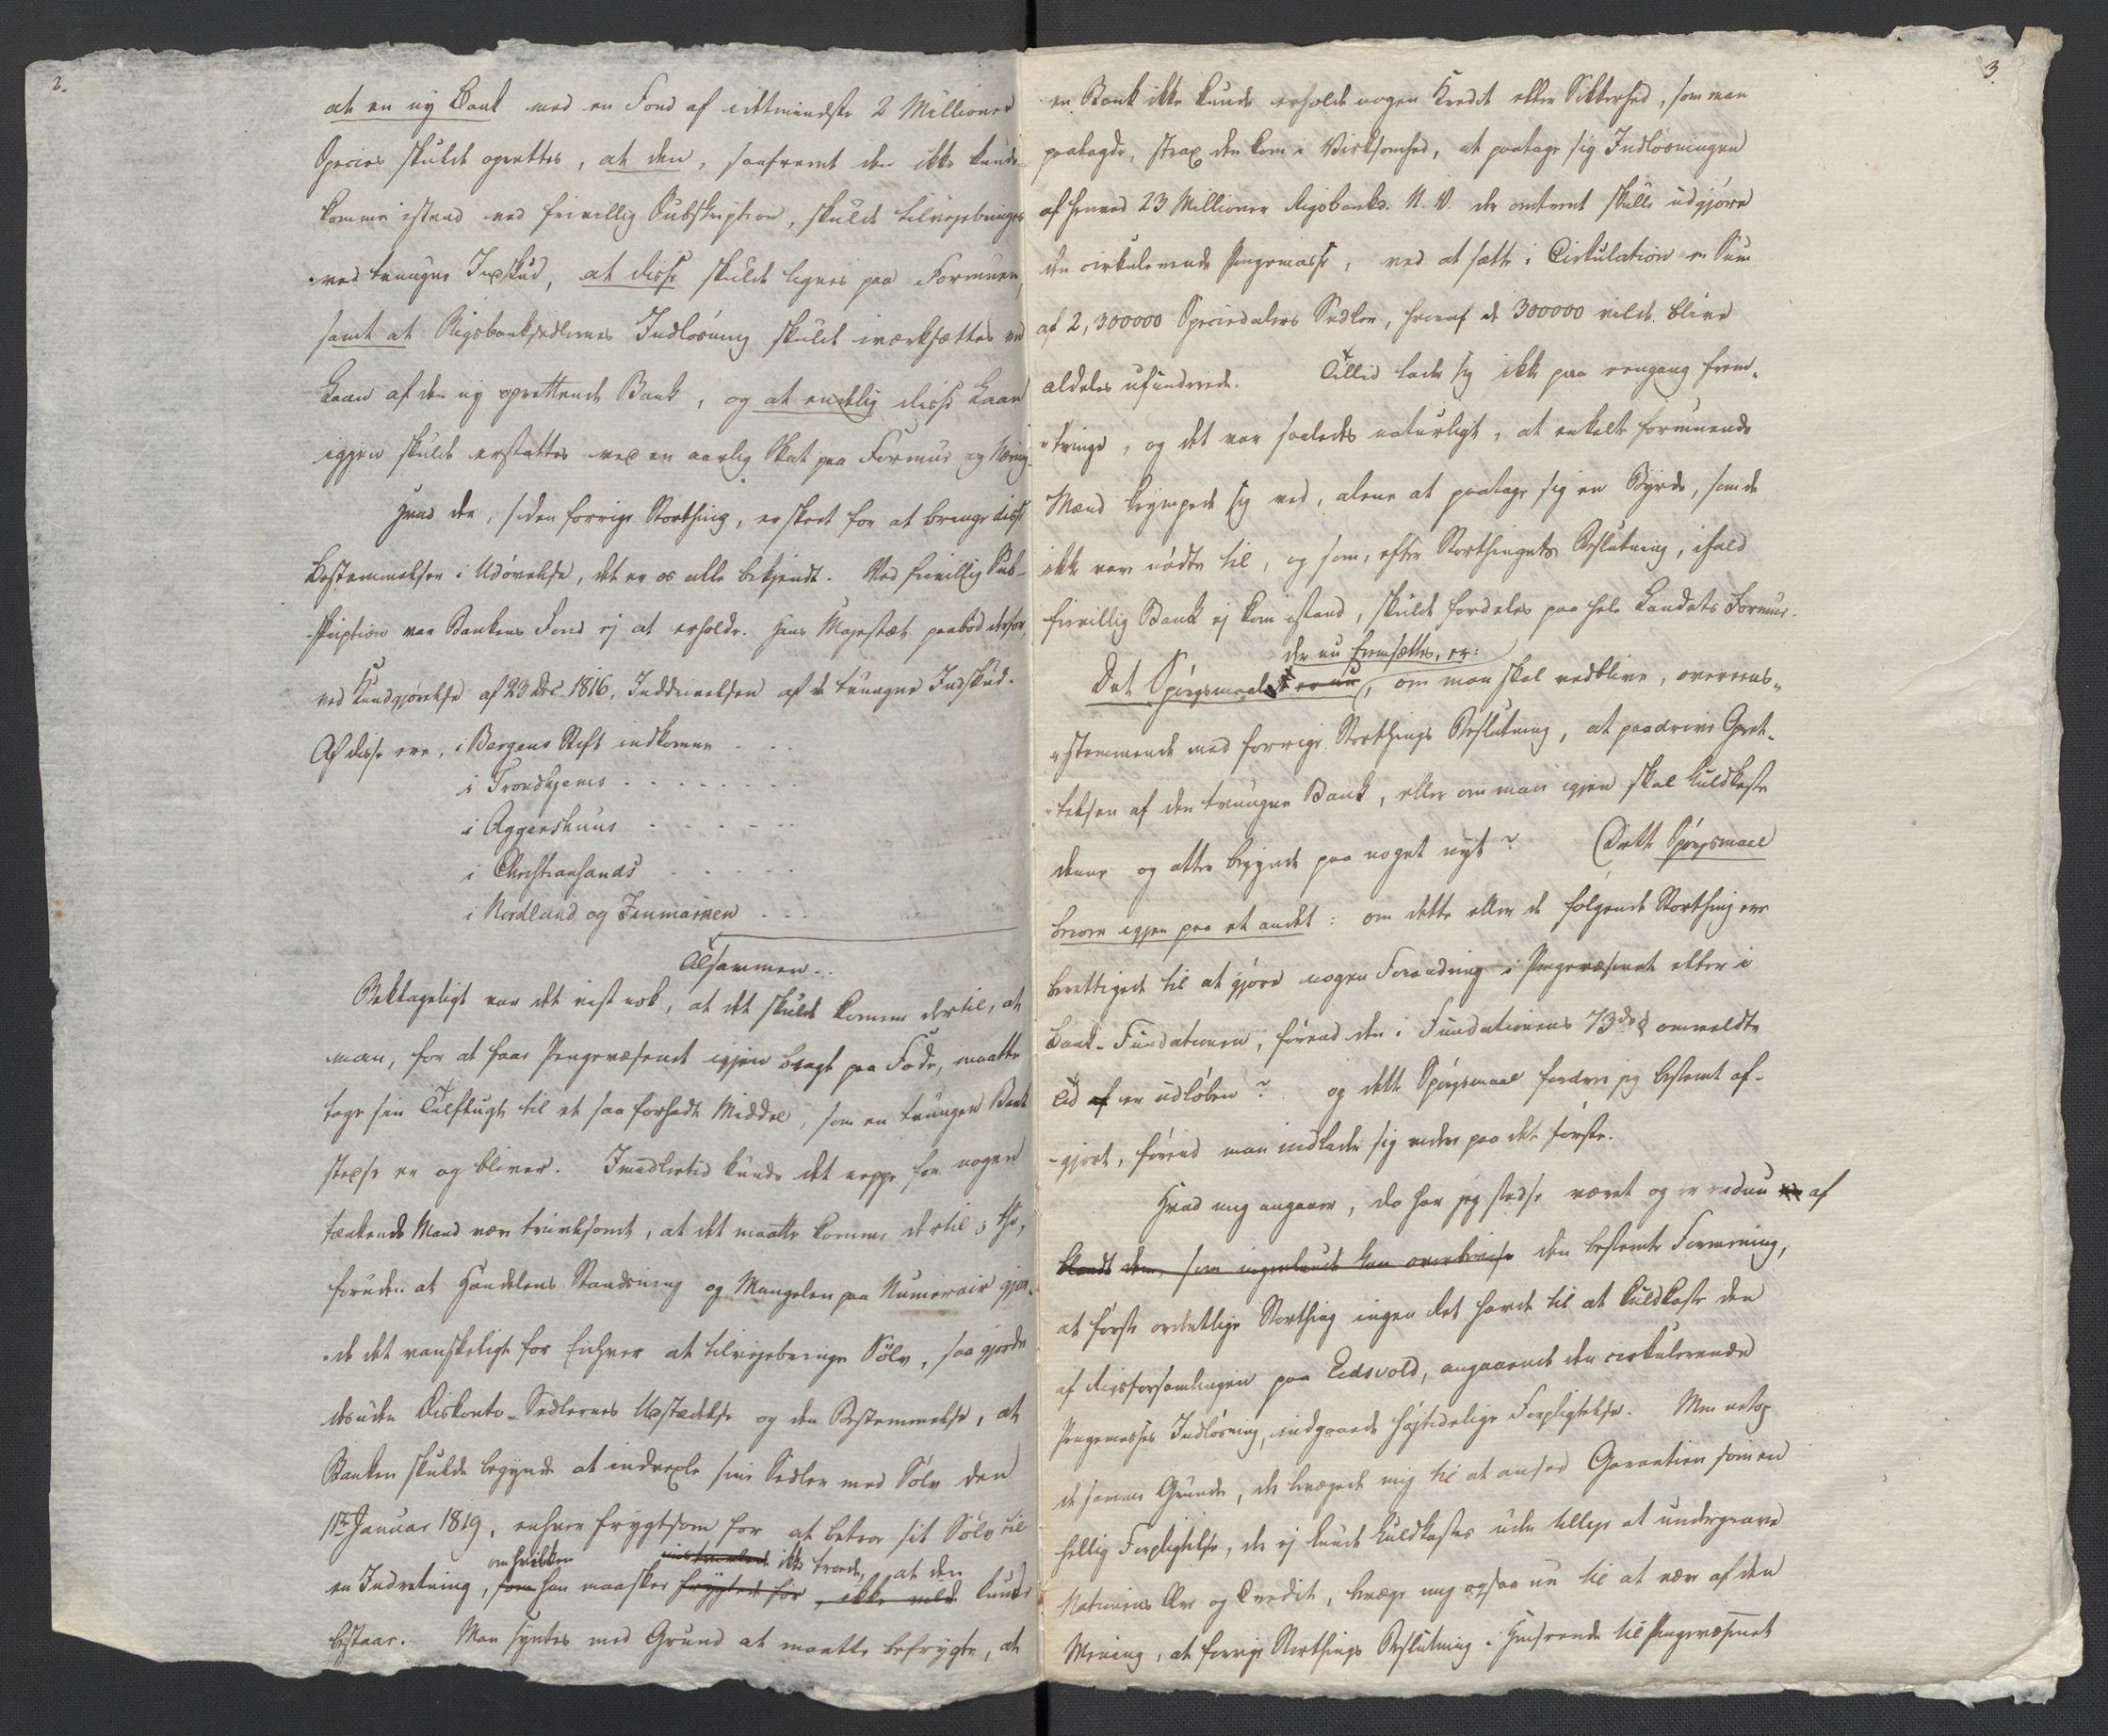 2.
at en ny Bank med en Fond af idetmindste 2 Millioner
Species skulde oprettes, at den, saafremt den ikke kunde
komme istand ved frivillig Subskription, skulde tilvejebringes
ved tvungne Indskud, at disse skulde lignes paa Formuen,
samt at Rigsbanksedlernes Indløsning skulde iværksættes ved
Laan af den ny oprettende Bank, og at endelig disse Laan
igjen skulde erstattes ved en aarlig Skat paa Formue og Næring.
Hvad der, siden forrige Storthing, er skeet for at bringe disse
Bestemmelser i Udøvelse, det er os alle bekjendt. Ved frivillig Sub-
skription var Bankens Fond ej at erholde. Hans Majestæt paabød derfor,
ved Kundgjørelse af 23 Dec. 1816, Inddrivelsen af de tvungne Indskud.
Af disse ere, i Bergens Stift indkomne . . .
i Trondhjems . . . . . . . .
i Aggershuus . . . . . .
i Christiansands . . . . . .
i Nordland og Finmarken . . .
Tilsammen . .
Beklageligt var det vist nok, at det skulde komme dertil, at
man, for at faae Pengevæsenet igjen bragt paa Fode, maatte
tage sin Tilflugt til et saa forhadt Middel, som en tvungen Bank
stedse er og bliver. Imidlertid kunde det neppe for nogen
tænkende Mand være tvivlsomt, at det maatte komme dertil; thi,
foruden at Handelens Standsning og Mangelen paa Numerair gjor-
de det vanskeligt for Enhver at tilvejebringe Sølv, saa gjorde
desuden Diskonto-Sedlernes Udstædelse og den Bestemmelse, at
Banken skulde begynde at indvexle sine Sedler med Sølv den
1ste Januar 1819, enhver frygtsom for at betroe sit Sølv til
om hvilken ikke troede, at den
en Indretning, som han maaskee frygtede for, ikke vilde kunde
bestaae. Man syntes med Grund at maatte befrygte, at
3
en Bank ikke kunde erholde nogen Kredit eller Sikkerhed, som man
paalagde, strax den kom i Virksomhed, at paatage sig Indløsningen
af henved 23 Millioner Rigsbankd. N. V. der omtrent skulle udgjøre
den cirkulerende Pengemasse, ved at sætte i Cirkulation en Sum
af 2,300000 Speciedalers Sedler, hvoraf de 300000 vilde blive
aldeles ufunderede. Tillid lader sig ikke paa eengang frem-
tvinge, og det var saaledes naturligt, at enkelte formuende
Mænd krympede sig ved, alene at paatage sig en Byrde, som de
ikke vare nødte til, og som, efter Storthingets Beslutning, ifald
frivillig Bank ej kom istand, skulde fordeles paa hele Landets Formue.
der nu fremsættes, er:
Det Spørgsmaal er nu, om man skal vedblive, overeens-
stemmende med forrige Storthings Beslutning, at paadrive Opret-
telsen af den tvungne Bank, eller om man igjen skal kuldkaste
denne og atter begynde paa noget nyt? Dette Spørgsmaal
beroer igjen paa et andet: om dette eller de følgende Storthing ere
berettigede til at gjøre nogen Forandring i Pengevæsenet eller i
Bank-Fundationen, førend den i Fundationens 73de § ommeldte
Tid af er udløben? og dette Spørgsmaal fordrer jeg bestemt af-
gjort, førend man indlader sig videre paa det første.
Hvad mig angaaer, da har jeg stedse været og er endnu af
blandt dem, som ingenlunde kan overbevise den bestemte Formening,
at første ordentlige Storthing ingen Ret havde til at kuldkaste den
af Rigsforsamlingen paa Eidsvold, angaaende den cirkulerende
Pengemasses Indløsning, indgaaede højtidelige Forpligtelse. Men netop
de samme Grunde, der bevægede mig til at ansee Garantien som en
hellig Forpligtelse, der ej kunde kuldkastes uden tillige at undergrave
Nationens Ære og Credit, bevæge mig ogsaa nu til at være af den
Mening, at forrige Storthings Beslutning i Henseende til Pengevæsenet